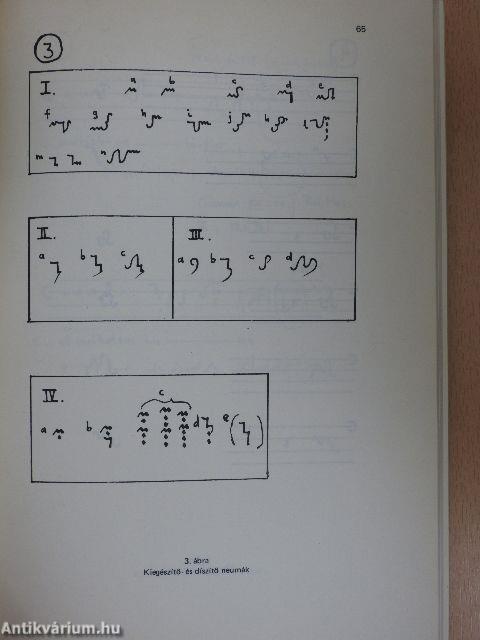 65
3
I.
a b c d e
f g h i j k l
m n
II. III.
a b c a b c d
IV.
c
a b d e
3. ábra
Kiegészítő- és díszítő neumák
Antikvárium.hu